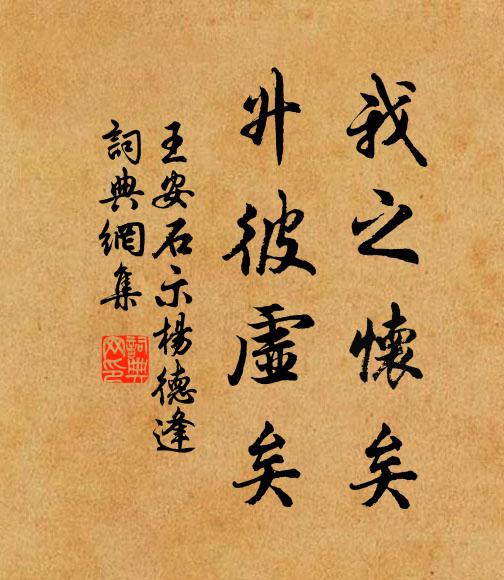 我之懷矣
升彼虛矣
王安石示楊德逢
詞典網集
詞典網印